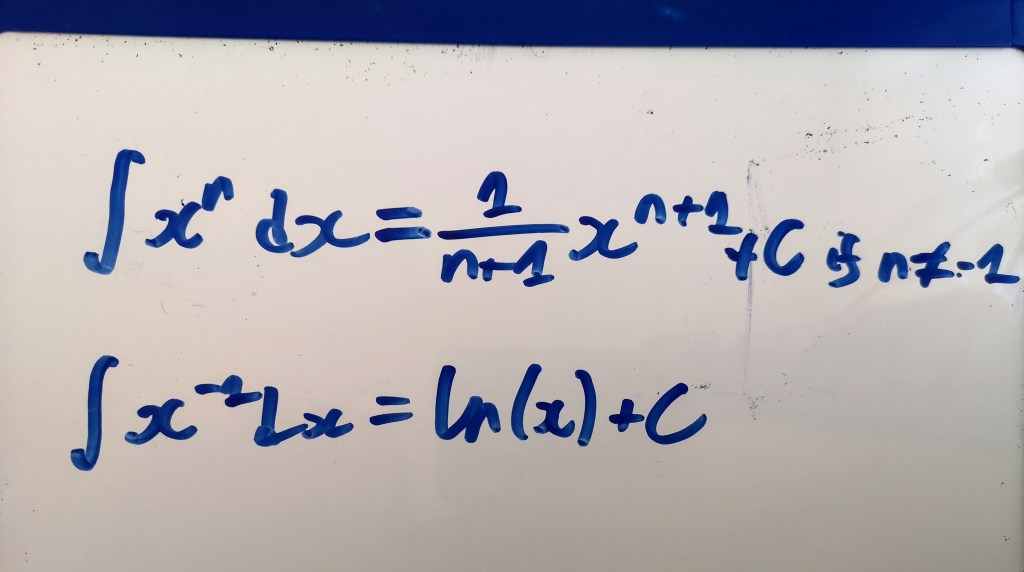 ∫ xⁿ dx = 1/(n+1) xⁿ⁺¹ + C if n ≠ -1
∫ x⁻¹ dx = ln(x) + C